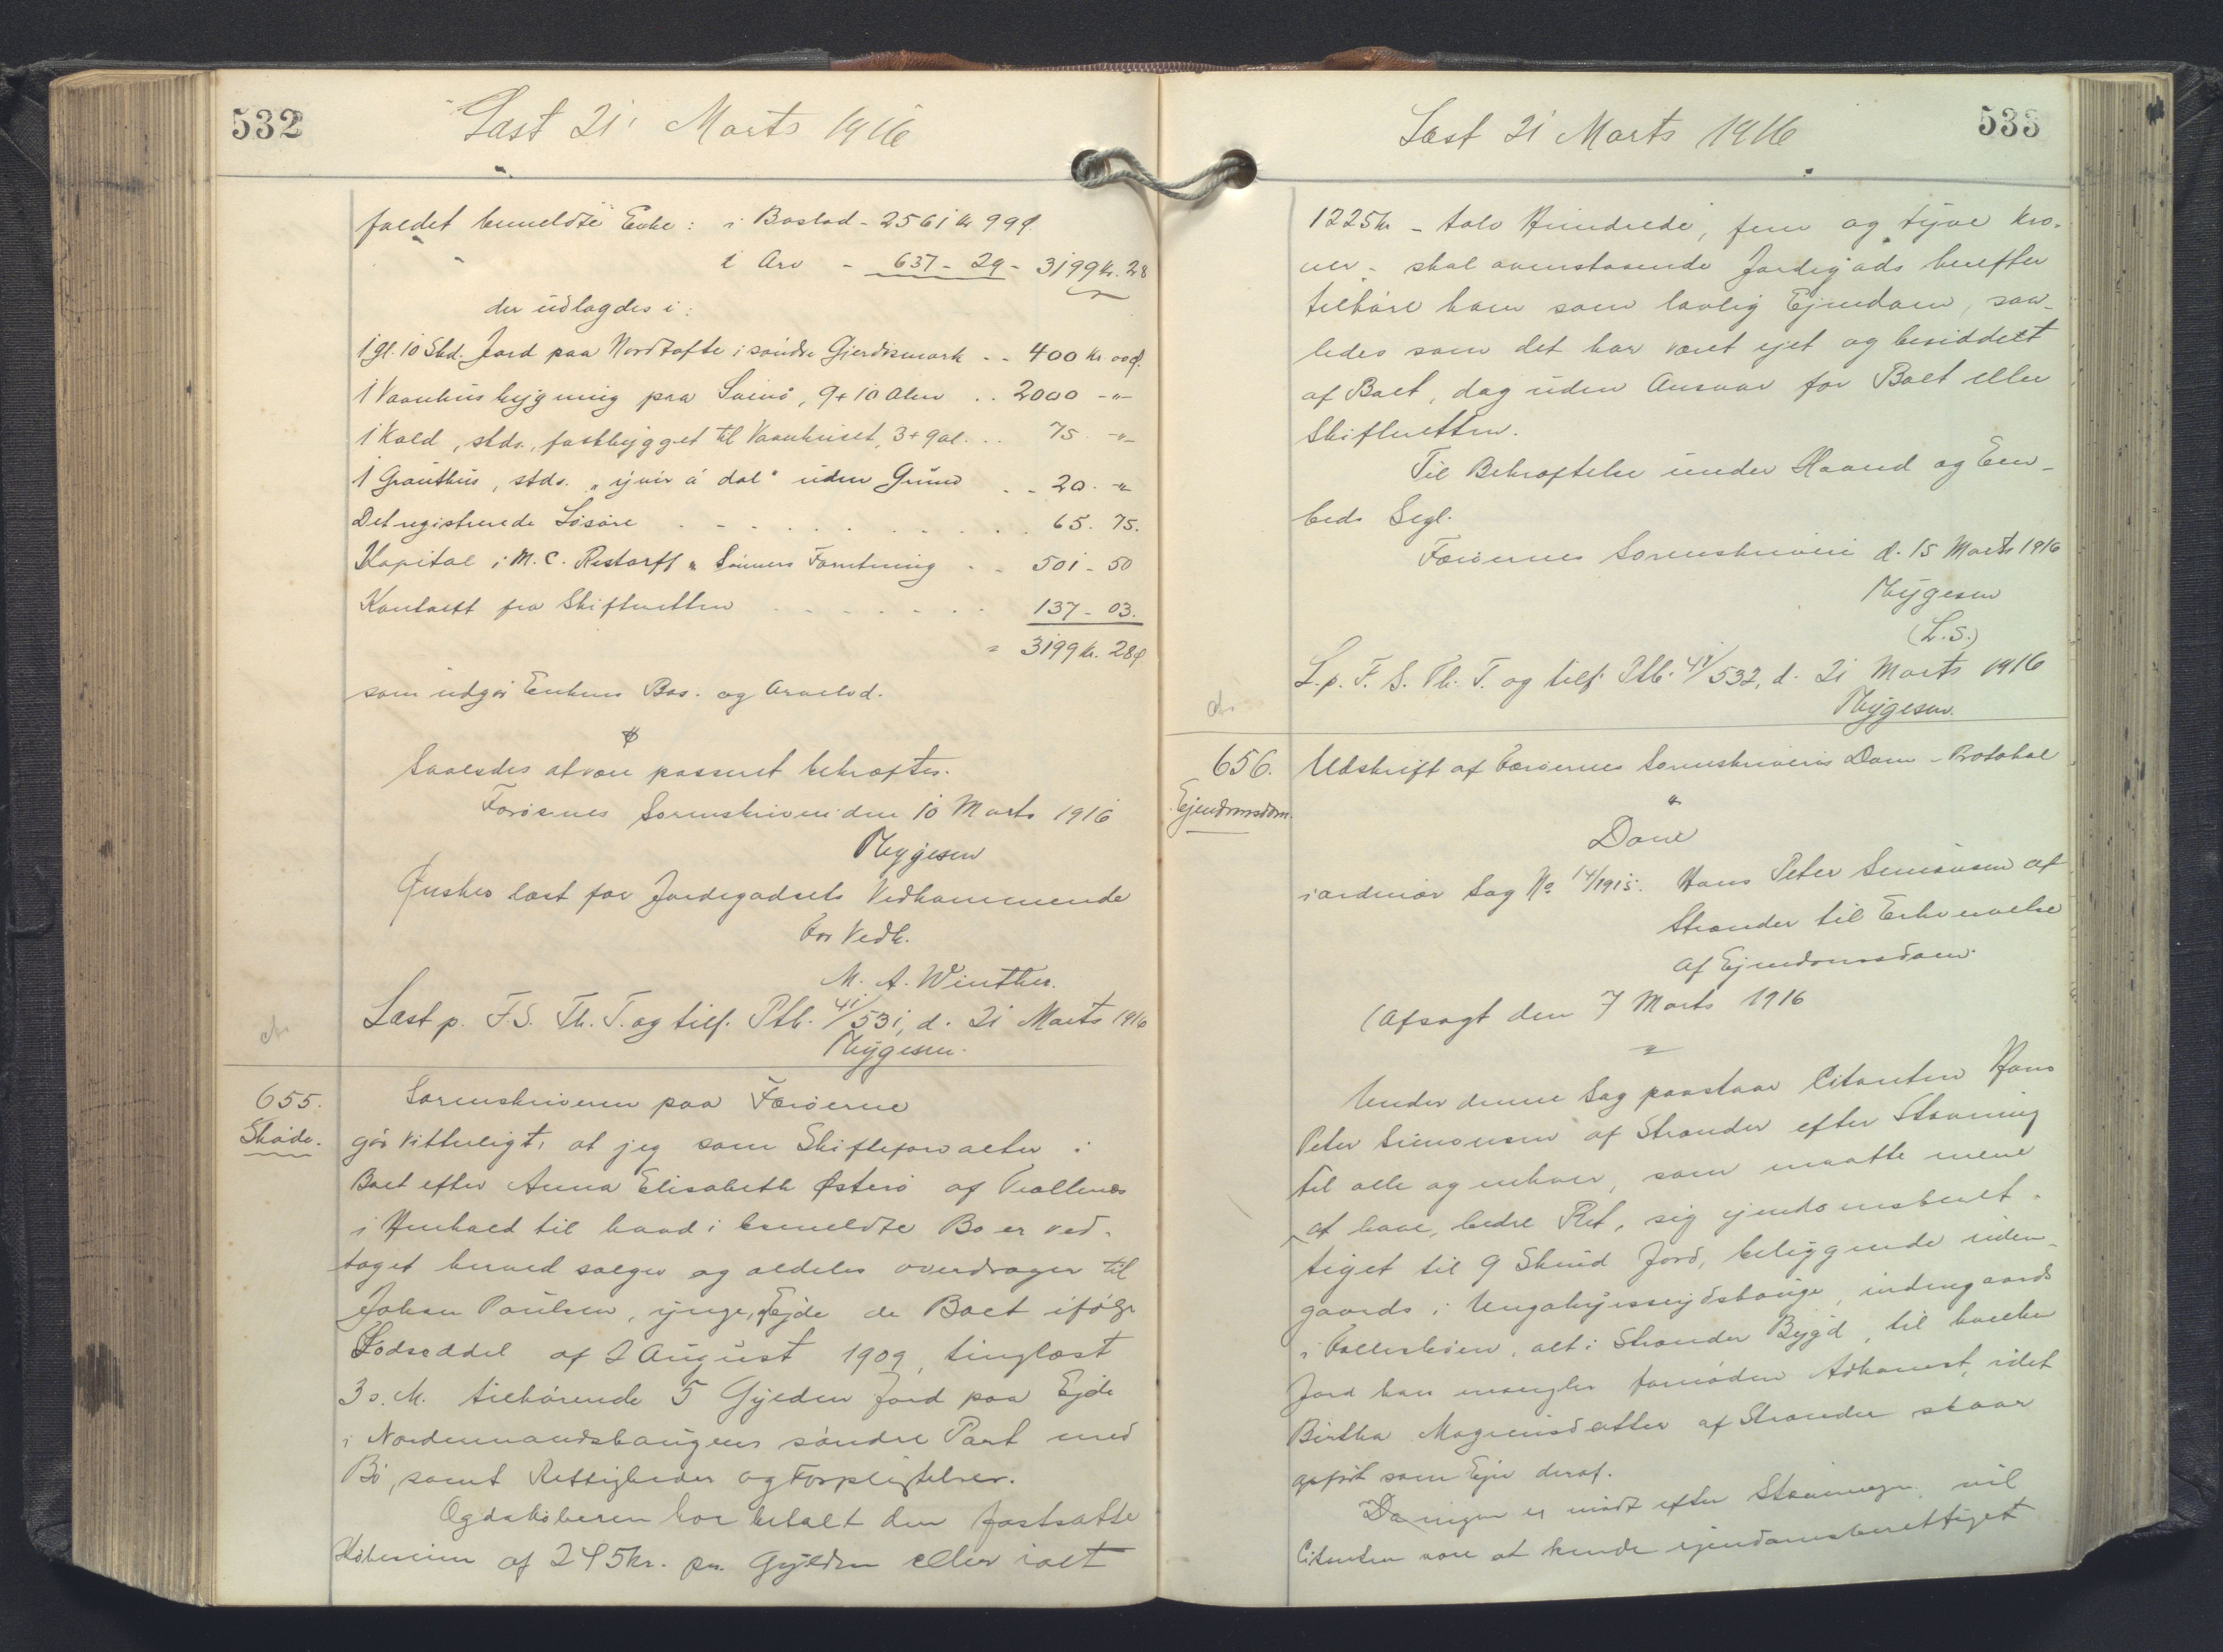 532
Læst 21' Marts 1916
faldet bemeldte Enke: i Boslod - 2561 kr 99 ø
i Arv - 637 - 29 - 3199 kr. 28
der udlagdes i:
1 gl. 10 Skd. Jord paa Nordtofte i søndre Gjerdismark - - 400 kr 00 ø.
1 Vaanhusbygning paa Svinø, 9 + 10 Alen . . 2000 - " -
1 Kald, stds., fastbygget til Vaanhuset, 3 + 9 al. . . 75 - " -
1 Grauthus, stds. " uden Grund . . 20. - " -
Det registrerede Løsøre . . . 65. 75.
Kapital i M. C. Restorff & Sønners Forretning . . 501 - 50
Kontant fra Skifteretten . . . 137 - 03.
= 3199 kr. 28 ø
som udgør Enkens Bos. og Arvelod.
Saaledes at være passeret bekræftes.
Færøernes Sorenskriveri den 10 Marts 1916
Mygesen
Ønskes læst for Jordegodsets Vedkommende
For Vedk.
M. A. Winther.
Læst p. F. S. Th. T. og tilf. Ptb. 41/531, d. 21 Marts 1916
Mygesen.
655.
Skøde.
Sorenskriveren paa Færøerne
gør vitterligt, at jeg som Skifteforvalter i
Boet efter Anna Elisabeth Østerø af
i Henhold til hvad i bemeldte Bo er ved-
taget herved sælger og aldeles overdrager til
Johan Poulsen, ynge, Ejde de Boet ifølge
Lodseddel af 2 August 1909, tinglæst
3 s. M. tilhørende 5 Gylden Jord paa Ejde
i Nordenmandshaugens søndre Part med
Bø, samt Rettigheder og Forpligtelser.
Og da Køberen har betalt den fastsatte
Købesum af 245 kr. pr. Gylden eller ialt
533
Læst 21 Marts 1916
1225 kr - tolv Hundrede, fem og tyve Kro-
ner - skal ovenstaaende Jordegods herefter
tilhøre ham som lovlig Ejendom, saa-
ledes som det har været ejet og besiddet
af Boet, dog uden Ansvar for Boet eller
Skifteretten.
Til Bekræftelse under Haand og Em-
beds Segl.
Færøernes Sorenskriveri d. 15 Marts 1916
Mygesen
(L.S.)
L. p. F. S. Th. T. og tilf. Ptb. 41/532, d. 21 Marts 1916
Mygesen.
656.
Ejendomsdom.
Udskrift af Færøernes Sorenskriveris Dom-Protokol
Dom
i ordinær Sag No 14/1915. Hans Peter Simonsen af
Strænder til Erhvervelse
af Ejendomsdom.
(Afsagt den 7 Marts 1916
Under denne Sag paastaar Citanten Hans
Peter Simonsen af Strænder efter Stævning
til alle og enhver, som maatte mene
at have bedre Ret, sig ejendomsberet-
tiget til 9 Skind Jord, beliggende uden-
gaards i indengaards
i alt i Strænder Bygd, til hvilken
Jord han mangler fornøden Adkomst, idet
Birtha Magnusdatter af Strænder staar
opført som Ejer deraf.
Da ingen er mødt efter Stævningen, vil
Citanten være at kende ejendomsberettiget